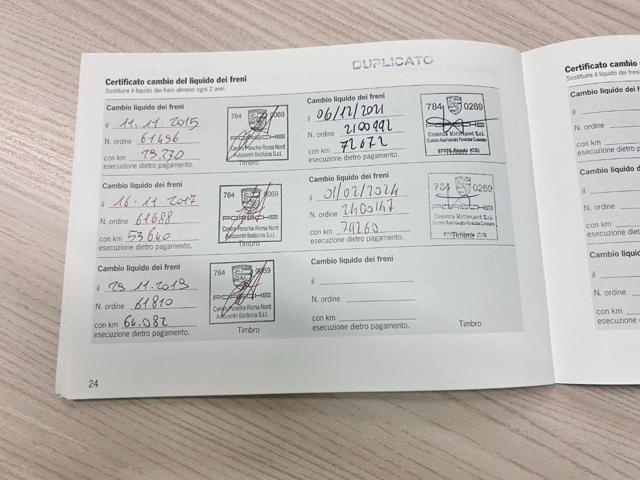 DUPLICATO
Certificato cambio del liquido dei freni
Sostituire il liquido dei freni almeno ogni 2 anni.
Cambio liquido dei freni
il 11.11.2015
N. ordine 61496
con km
esecuzione dietro pagamento.
784 0069
PORSCHE
Centro Porsche Roma Nord
Autocentri Balduina S.r.l.
Timbro
Cambio liquido dei freni
il 06/12/2021
N. ordine 2100992
con km 72672
esecuzione dietro pagamento.
784 0269
PORSCHE
Cosenza Motorsport S.r.l.
Centro Assistenza Porsche Cosenza
Cambio liquido dei freni
il 16.11.2017
N. ordine 61688
con km 53640
esecuzione dietro pagamento.
784 0069
PORSCHE
Centro Porsche Roma Nord
Autocentri Balduina S.r.l.
Timbro
Cambio liquido dei freni
il 01/02/2024
N. ordine 2400147
con km 74260
esecuzione dietro pagamento.
784 0269
PORSCHE
Cosenza Motorsport S.r.l.
Centro Assistenza Porsche Cosenza
Timbro
Cambio liquido dei freni
il 29.11.2019
N. ordine 61810
con km 64.082
esecuzione dietro pagamento.
784 0069
PORSCHE
Centro Porsche Roma Nord
Autocentri Balduina S.r.l.
Timbro
Cambio liquido dei freni
il
N. ordine
con km
esecuzione dietro pagamento.
Timbro
24
Certificato cambio
Sostituire il liquido dei freni
Cambio liquido dei
il
N. ordine
con km
esecuzione dietro p
Cambio liquido dei
il
N. ordine
con km
esecuzione dietro
Cambio liquido de
il
N. ordine
con km
esecuzione dietr